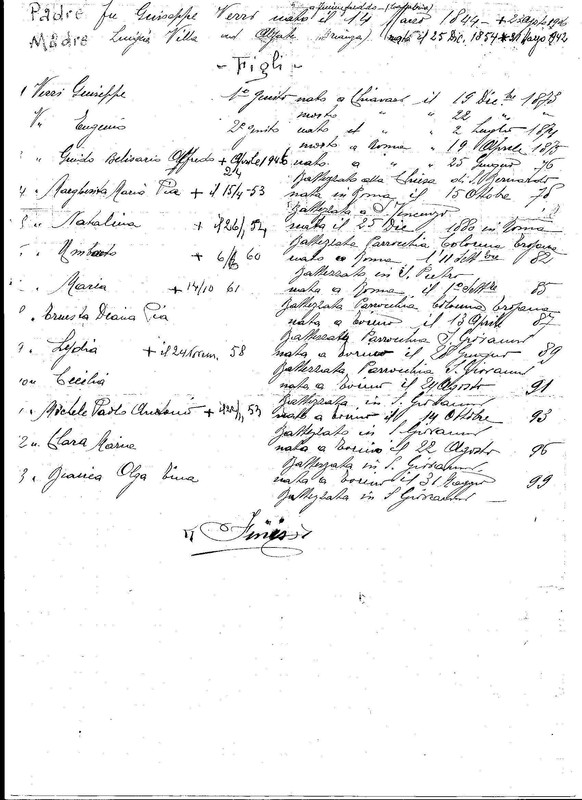 a Fiumefreddo - (Calabria)
Padre fu Guiseppe Verri nato il 14 Marzo 1844 - + 2 1916
Madre Luigia Villa ad Alzate Brianza) nata il 25 Dic. 1854 + 31 Marzo 942
- Figli -
1 Verri Guiseppe 1º genito nato a Chiavari il 19 Dic. bre 1873
morto " 22 " "
V. Eugenio 2º genito nato il " 2 Luglio 1874
morto a Roma " 19 Aprile 1875
" Guido Belisario Alfredo + Aprile 1946 nato a " " 25 Giugno 76
24 Battezzato alla Chiesa di S. Bernardo
4 " Margherita Maria Pia + il 15/4-53 nata in Roma il 15 Ottobre 78
Battezzata a S. Vincenzo
5 " Natalina + il 26/1, 54 nata il 25 Dic 1880 in Roma
Battezzata Parrocchia Colonna Trajana
" Umberto + 6/6 60 nato a Roma l'11 Settbre 82
Battezzato in S. Pietro
" Maria + 14/10 61 nata a Roma il 1º Settbre 85
Battezzata Parrocchia Colonna Trojana
8 " Ernesta Diana Pia nata a Torino il 13 Aprile 87
Battezzata Parrocchia S. Giovanni
9 " Lydia + il 24 Novem. 58 nata a Torino il 28 Giugno 89
Battezzata Parrocchia S. Giovanni
10 " Cecilia nata a Torino il 29 Agosto 91
Battezzata in S. Giovanni
1 " Michele Paolo Antonio + 53 nato a Torino il 14 Ottobre 93
Battezzato in S. Giovanni
2 " Clara Maria nata a Torino il 22 Agosto 96
Battezzata in S. Giovanni
3 " Bianca Olga Tina nata a Torino il 31 Maggio 99
Battezzata in S Giovanni
Finis